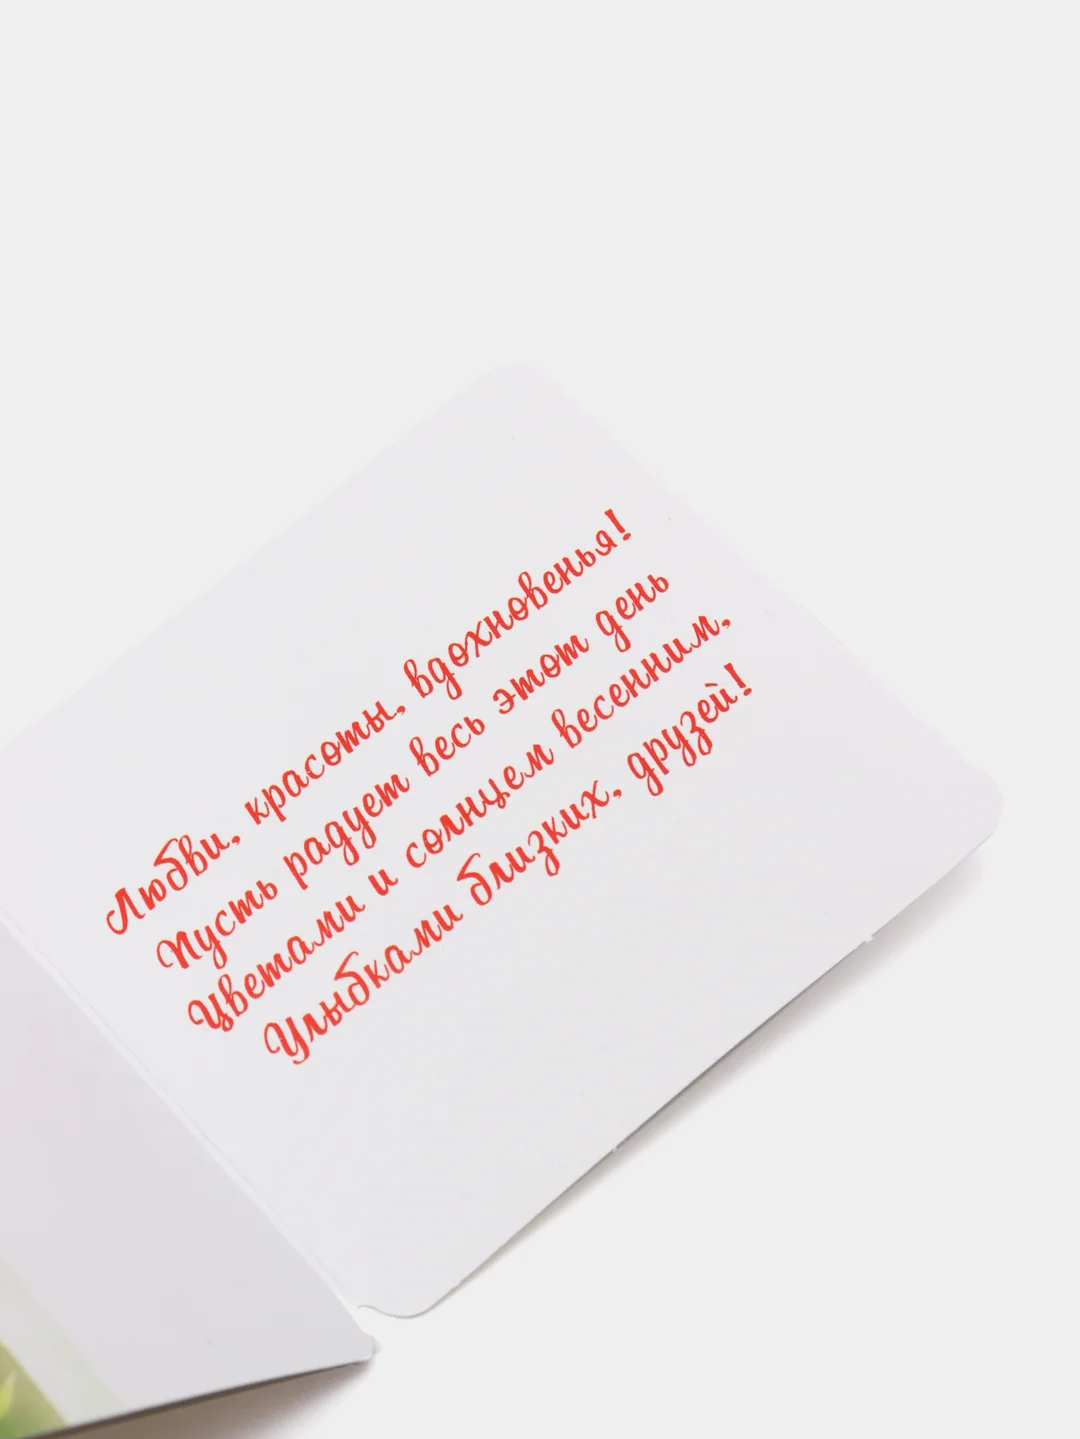 Любви, красоты, вдохновенья!
Пусть радует весь этот день
Цветами и солнцем весенним,
Улыбками близких, друзей!